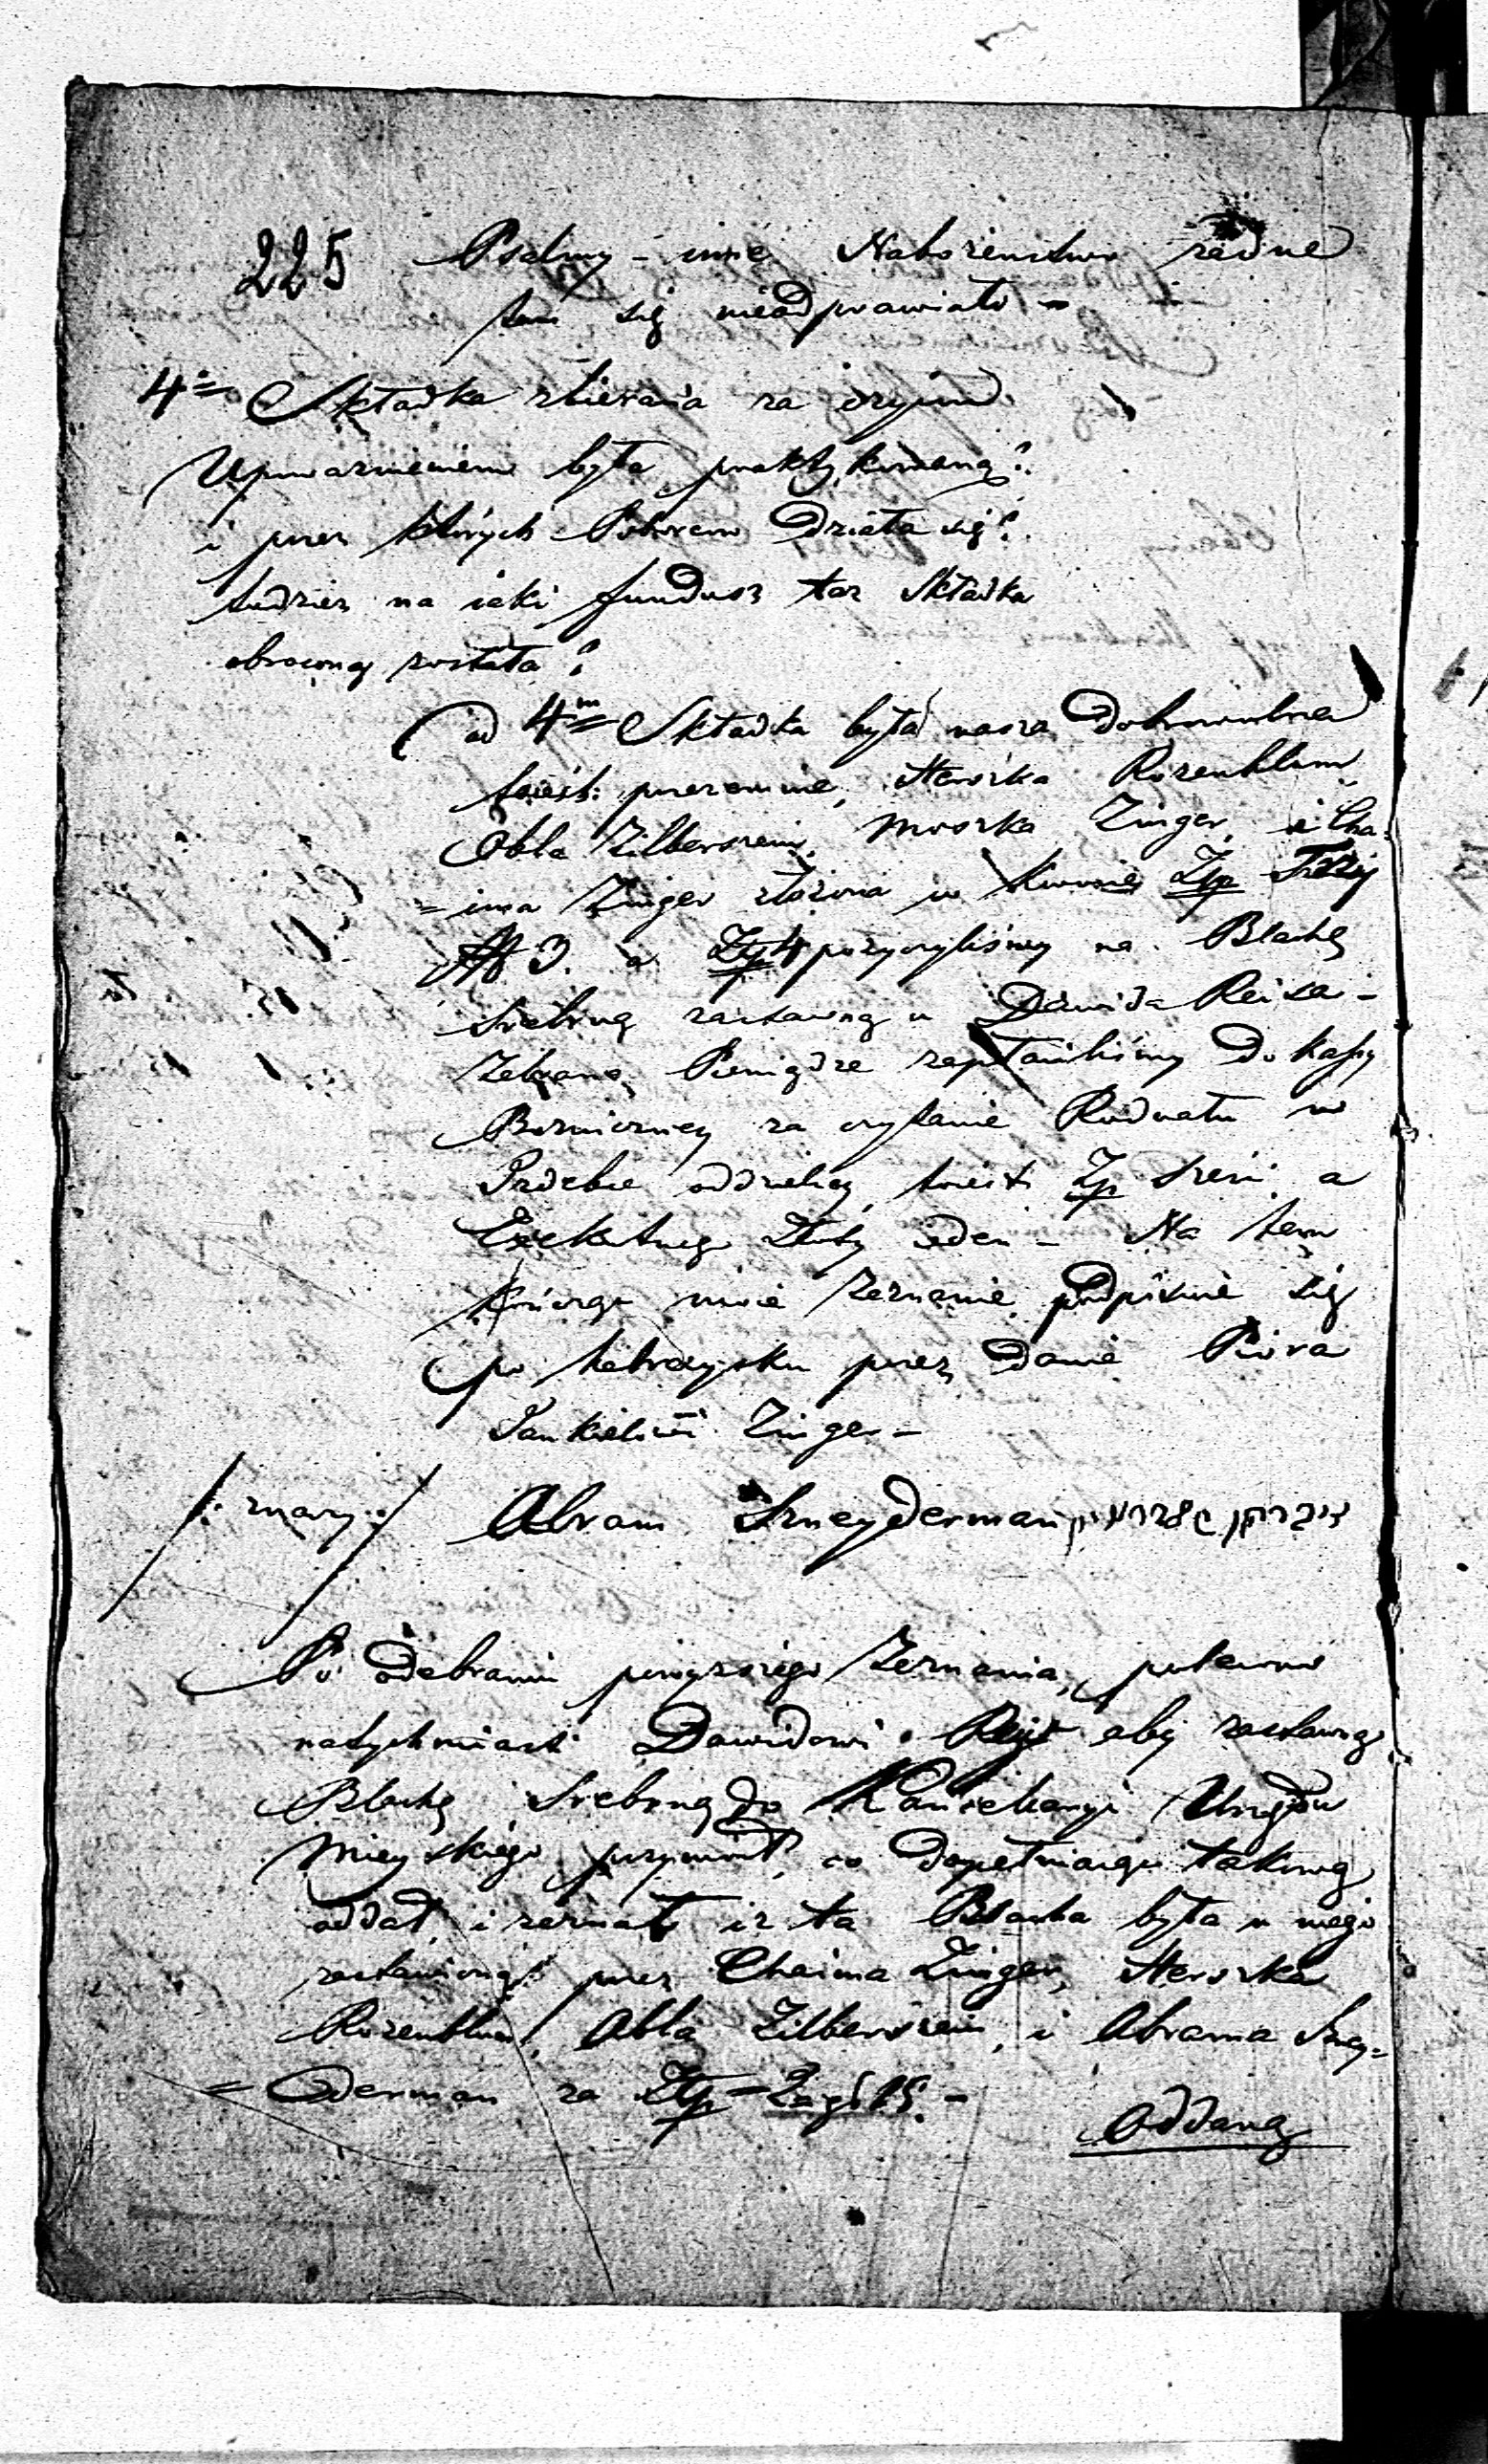 225 Psalmy - inne Nabożenstwo żadne
tam się nieodprawiało -
4º Składka zbierania za czyim
Upoważnieniem była praktykowaną?
i przez których Poborem działa się?
tudzież na iaki fundusz taż Składka
obroconą została?
ad 4m Składka była nasza dobrowolna
toiest: przezemnie, Herszka Rozenblum
Abla Zilberszein, Moszka Zinger, i Cha-
=ima Zinger złożona w kwocie Złp Trzy
3. a Złp 4 pożyczyliśmy na Blachę
srebrną zastawną u Dawida Reiza -
Zebrane Pieniądze zapłaciliśmy do kassy
Bożniczney za czytanie Rodnatu w
Izdebce oddzielney toiest Złp sześć, a
Exekutnego Złoty ieden - Na tem
kończąc moie Zeznanie podpisuie się
po hebraysku przez danie Pióra
Jankielowi Zinger -
/: znany :/ Abram Szneyderman
Po odebraniu powyższego Zeznania, polecono
natychmiast Dawidowi Reyz aby zastawną
Blachę Srebrną do Kancellaryi Urzędu
Mieyskiego przyniósł, co dopełniaiąc takową
oddał i zeznał iż ta Blacha była u niego
zastawioną przez Chaima Zinger, Herszka
Rozenblum, Abla Zilberszein, i Abrama Szney-
=derman za Złp - 2 gr 15. -
Oddaną